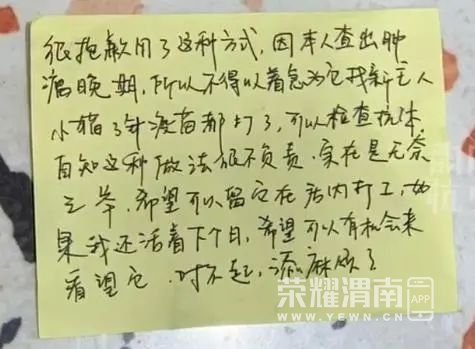 很抱歉用了这种方式，因本人查出肿
瘤晚期，所以不得以着急为它找新主人
小猫3年疫苗都打了，可以检查抗体，
自知这种做法很不负责，实在是无奈
之举，希望可以留它在店内打工，如
果我还活着下个月，希望可以有机会来
看望它，对不起，添麻烦了
荣耀渭南APP
WWW.YEWN.CN